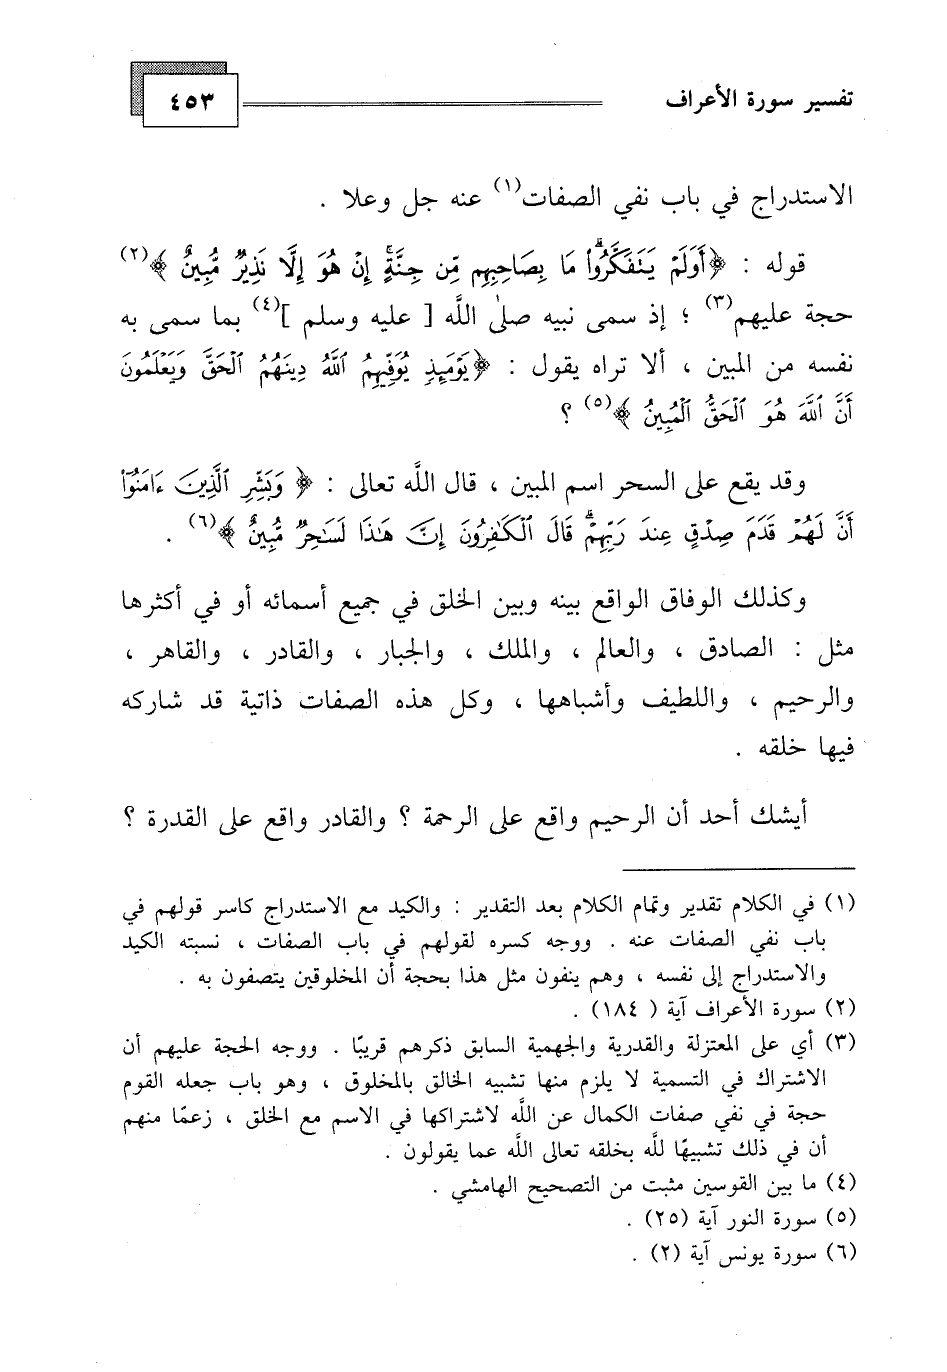 تفسير سورة الأعراف ٤٥٣
الاستدراج في باب نفي الصفات(١) عنه جل وعلا .
قوله : ﴿أَوَلَمْ يَتَفَكَّرُوا۟ مَا بِصَاحِبِهِم مِّن جِنَّةٍ إِنْ هُوَ إِلَّا نَذِيرٌ مُّبِينٌ ﴾(٢)
حجة عليهم(٣) ؛ إذ سمى نبيه صلى الله [ عليه وسلم ](٤) بما سمى به
نفسه من المبين ، ألا تراه يقول : ﴿يَوْمَئِذٍ يُوَفِّيهِمُ ٱللَّهُ دِينَهُمُ ٱلْحَقَّ وَيَعْلَمُونَ
أَنَّ ٱللَّهَ هُوَ ٱلْحَقُّ ٱلْمُبِينُ ﴾(٥) ؟
وقد يقع على السحر اسم المبين ، قال الله تعالى : ﴿ وَبَشِّرِ ٱلَّذِينَ ءَامَنُوٓا۟
أَنَّ لَهُمْ قَدَمَ صِدْقٍ عِندَ رَبِّهِمْ قَالَ ٱلْكَٰفِرُونَ إِنَّ هَٰذَا لَسَٰحِرٌ مُّبِينٌ ﴾(٦) .
وكذلك الوفاق الواقع بينه وبين الخلق في جميع أسمائه أو في أكثرها
مثل : الصادق ، والعالم ، والملك ، والجبار ، والقادر ، والقاهر ،
والرحيم ، واللطيف وأشباهها ، وكل هذه الصفات ذاتية قد شاركه
فيها خلقه .
أيشك أحد أن الرحيم واقع على الرحمة ؟ والقادر واقع على القدرة ؟
(١) في الكلام تقدير وتمام الكلام بعد التقدير : والكيد مع الاستدراج كاسر قولهم في
باب نفي الصفات عنه . ووجه كسره لقولهم في باب الصفات ، نسبته الكيد
والاستدراج إلى نفسه ، وهم ينفون مثل هذا بحجة أن المخلوقين يتصفون به .
(٢) سورة الأعراف آية ( ١٨٤) .
(٣) أي على المعتزلة والقدرية والجهمية السابق ذكرهم قريبًا . ووجه الحجة عليهم أن
الاشتراك في التسمية لا يلزم منها تشبيه الخالق بالمخلوق ، وهو باب جعله القوم
حجة في نفي صفات الكمال عن الله لاشتراكها في الاسم مع الخلق ، زعمًا منهم
أن في ذلك تشبيهًا لله بخلقه تعالى الله عما يقولون .
(٤) ما بين القوسين مثبت من التصحيح الهامشي .
(٥) سورة النور آية (٢٥) .
(٦) سورة يونس آية (٢) .